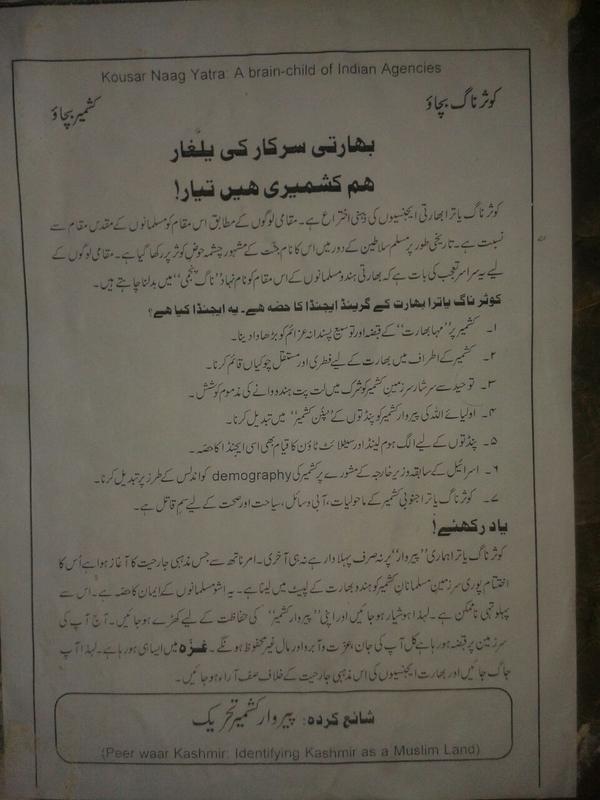 Kousar Naag Yatra: A brain-child of Indian Agencies
کوثر ناگ بچاؤ
کشمیر بچاؤ
بھارتی سرکار کی یلغار
ھم کشمیری ھیں تیار!
کوثر ناگ یاترا بھارتی ایجنسیوں کی ذہنی اختراع ہے۔ مقامی لوگوں کے مطابق اس مقام کو مسلمانوں کے مقدس مقام سے
نسبت ہے۔ تاریخی طور پر مسلم سلاطین کے دور میں اس کا نام جنّت کے مشہور چشمہ حوض کوثر پر رکھا گیا ہے۔ مقامی لوگوں کے
لیے یہ سراسر تعجب کی بات ہے کہ بھارتی ہندو مسلمانوں کے اس مقام کو نام نہاد ”ناگ پنچمی“ میں بدلنا چاہتے ہیں۔
کوثر ناگ یاترا بھارت کے گرینڈ ایجنڈا کا حصّہ ھے۔ یہ ایجنڈا کیا ھے؟
۱۔ کشمیر پر ”مہا بھارت“ کے قبضہ اور توسیع پسندانہ عزائم کو بڑھاوا دینا۔
۲۔ کشمیر کے اطراف میں بھارت کے لیے فطری اور مستقل چوکیاں قائم کرنا۔
۳۔ توحید سے سرشار سرزمین کشمیر کو شرک میں لت پت ہندوانے کی مذموم کوشش۔
۴۔ اولیائے اللہ کی پیروار کشمیر کو پنڈتوں کے ”پنُن کشمیر“ میں تبدیل کرنا۔
۵۔ پنڈتوں کے لیے الگ ہوم لینڈ اور سیٹلائٹ ٹاؤن کا قیام بھی اسی ایجنڈا کا حصّہ۔
۶۔ اسرائیل کے سابقہ وزیر خارجہ کے مشورے پر کشمیر کی demography کو اندلس کے طرز پر تبدیل کرنا۔
۷۔ کوثر ناگ یاترا جنوبی کشمیر کے ماحولیات، آبی وسائل، سیاحت اور صحت کے لیے سم قاتل ہے۔
یاد رکھئے!
کوثر ناگ یاترا ہماری ”پیروار“ پر نہ صرف پہلا وار ہے نہ ہی آخری۔ امرناتھ سے جس مذہبی جارحیت کا آغاز ہوا ہے اُس کا
اختتام پوری سرزمین مسلمانانِ کشمیر کو ہندو بھارت کے لپیٹ میں لینا ہے۔ یہ اشو مسلمانوں کے ایمان کا حصّہ ہے۔ اس سے
پہلو تہی ناممکن ہے۔ لہذا ہوشیار ہو جائیں اور اپنی ”پیروار کشمیر“ کی حفاظت کے لیے کھڑے ہو جائیں۔ آج آپ کی
سرزمین پر قبضہ ہو رہا ہے کل آپ کی جان، عزت و آبرو اور مال غیر محفوظ ہونگے۔ غزّہ میں ایسا ہی ہو رہا ہے۔ لہذا آپ
جاگ جائیں اور بھارت ایجنسیوں کی اس مذہبی جارحیت کے خلاف صف آراء ہو جائیں۔
شائع کردہ: پیروار کشمیر تحریک
(Peer waar Kashmir: Identifying Kashmir as a Muslim Land)